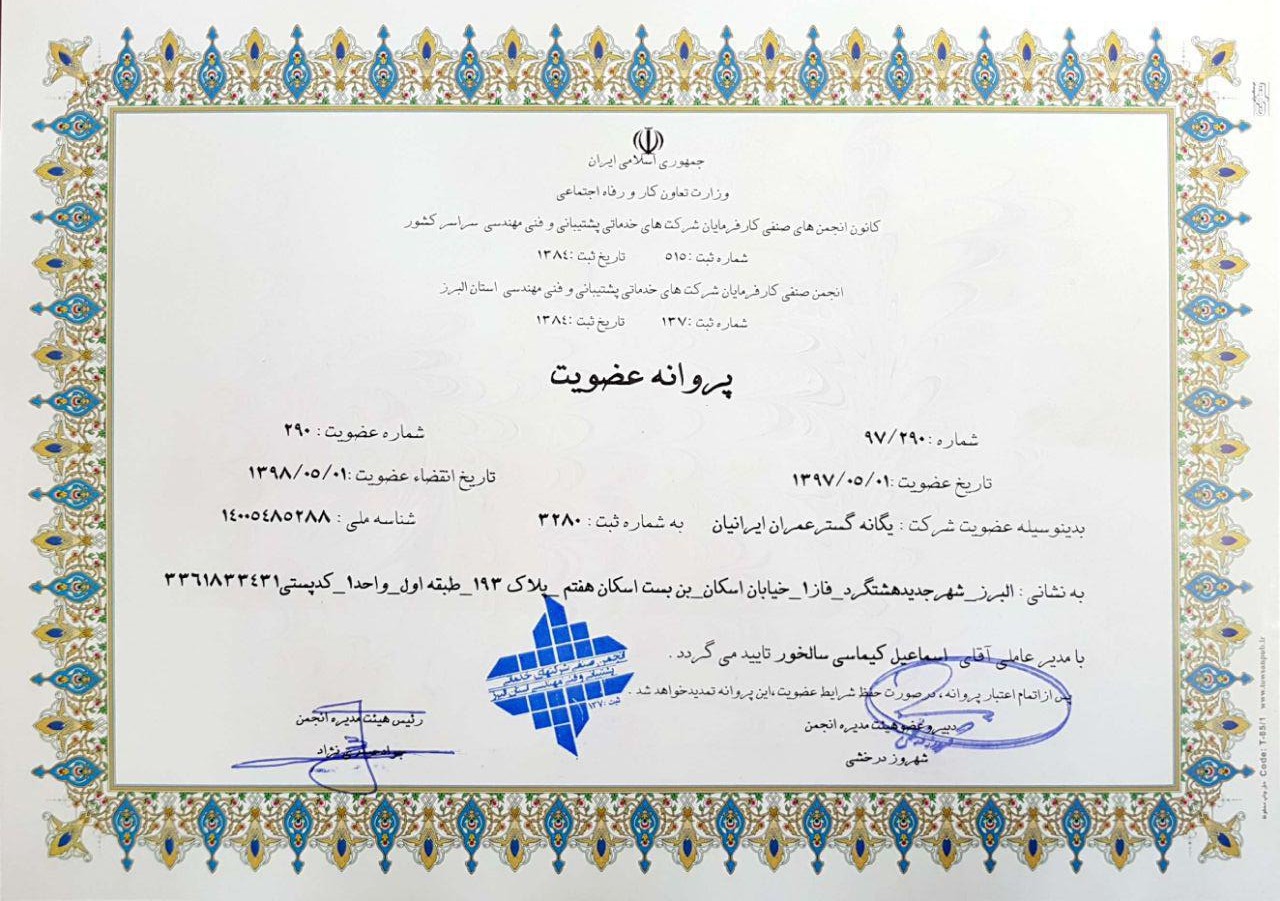 جمهوری اسلامی ایران
وزارت تعاون کار و رفاه اجتماعی
کانون انجمن های صنفی کارفرمایان شرکت های خدماتی پشتیبانی و فنی مهندسی سراسر کشور
شماره ثبت :۵۱۵ تاریخ ثبت :۱۳۸٤
انجمن صنفی کارفرمایان شرکت های خدماتی پشتیبانی و فنی مهندسی استان البرز
شماره ثبت :۱۳۷ تاریخ ثبت :۱۳۸٤
پروانه عضویت
شماره :۹۷/۲۹۰ شماره عضویت : ۲۹۰
تاریخ عضویت :۱۳۹۷/۰۵/۰۱ تاریخ انقضاء عضویت :۱۳۹۸/۰۵/۰۱
بدینوسیله عضویت شرکت : یگانه گستر عمران ایرانیان به شماره ثبت : ۳۲۸۰ شناسه ملی : ۱٤۰۰۵٤۸۵۲۸۸
به نشانی : البرز_شهرجدیدهشتگرد_فاز۱_خیابان اسکان_بن بست اسکان هفتم _پلاک ۱۹۳_طبقه اول_واحد۱_کدپستی۳۳٦۱۸۳۳٤۳۱
با مدیر عاملی آقای اسماعیل کیماسی سالخور تایید می گردد .
پس از اتمام اعتبار پروانه ، در صورت حفظ شرایط عضویت ، این پروانه تمدید خواهد شد .
انجمن صنفی شرکتهای خدماتی
پشتیبانی و فنی مهندسی استان البرز
ثبت : ۱۳۷
دبیر و عضو هیئت مدیره انجمن
شهروز درخشی
رئیس هیئت مدیره انجمن
جواد نژاد
Code: T-85/1 www.towsanpub.ir